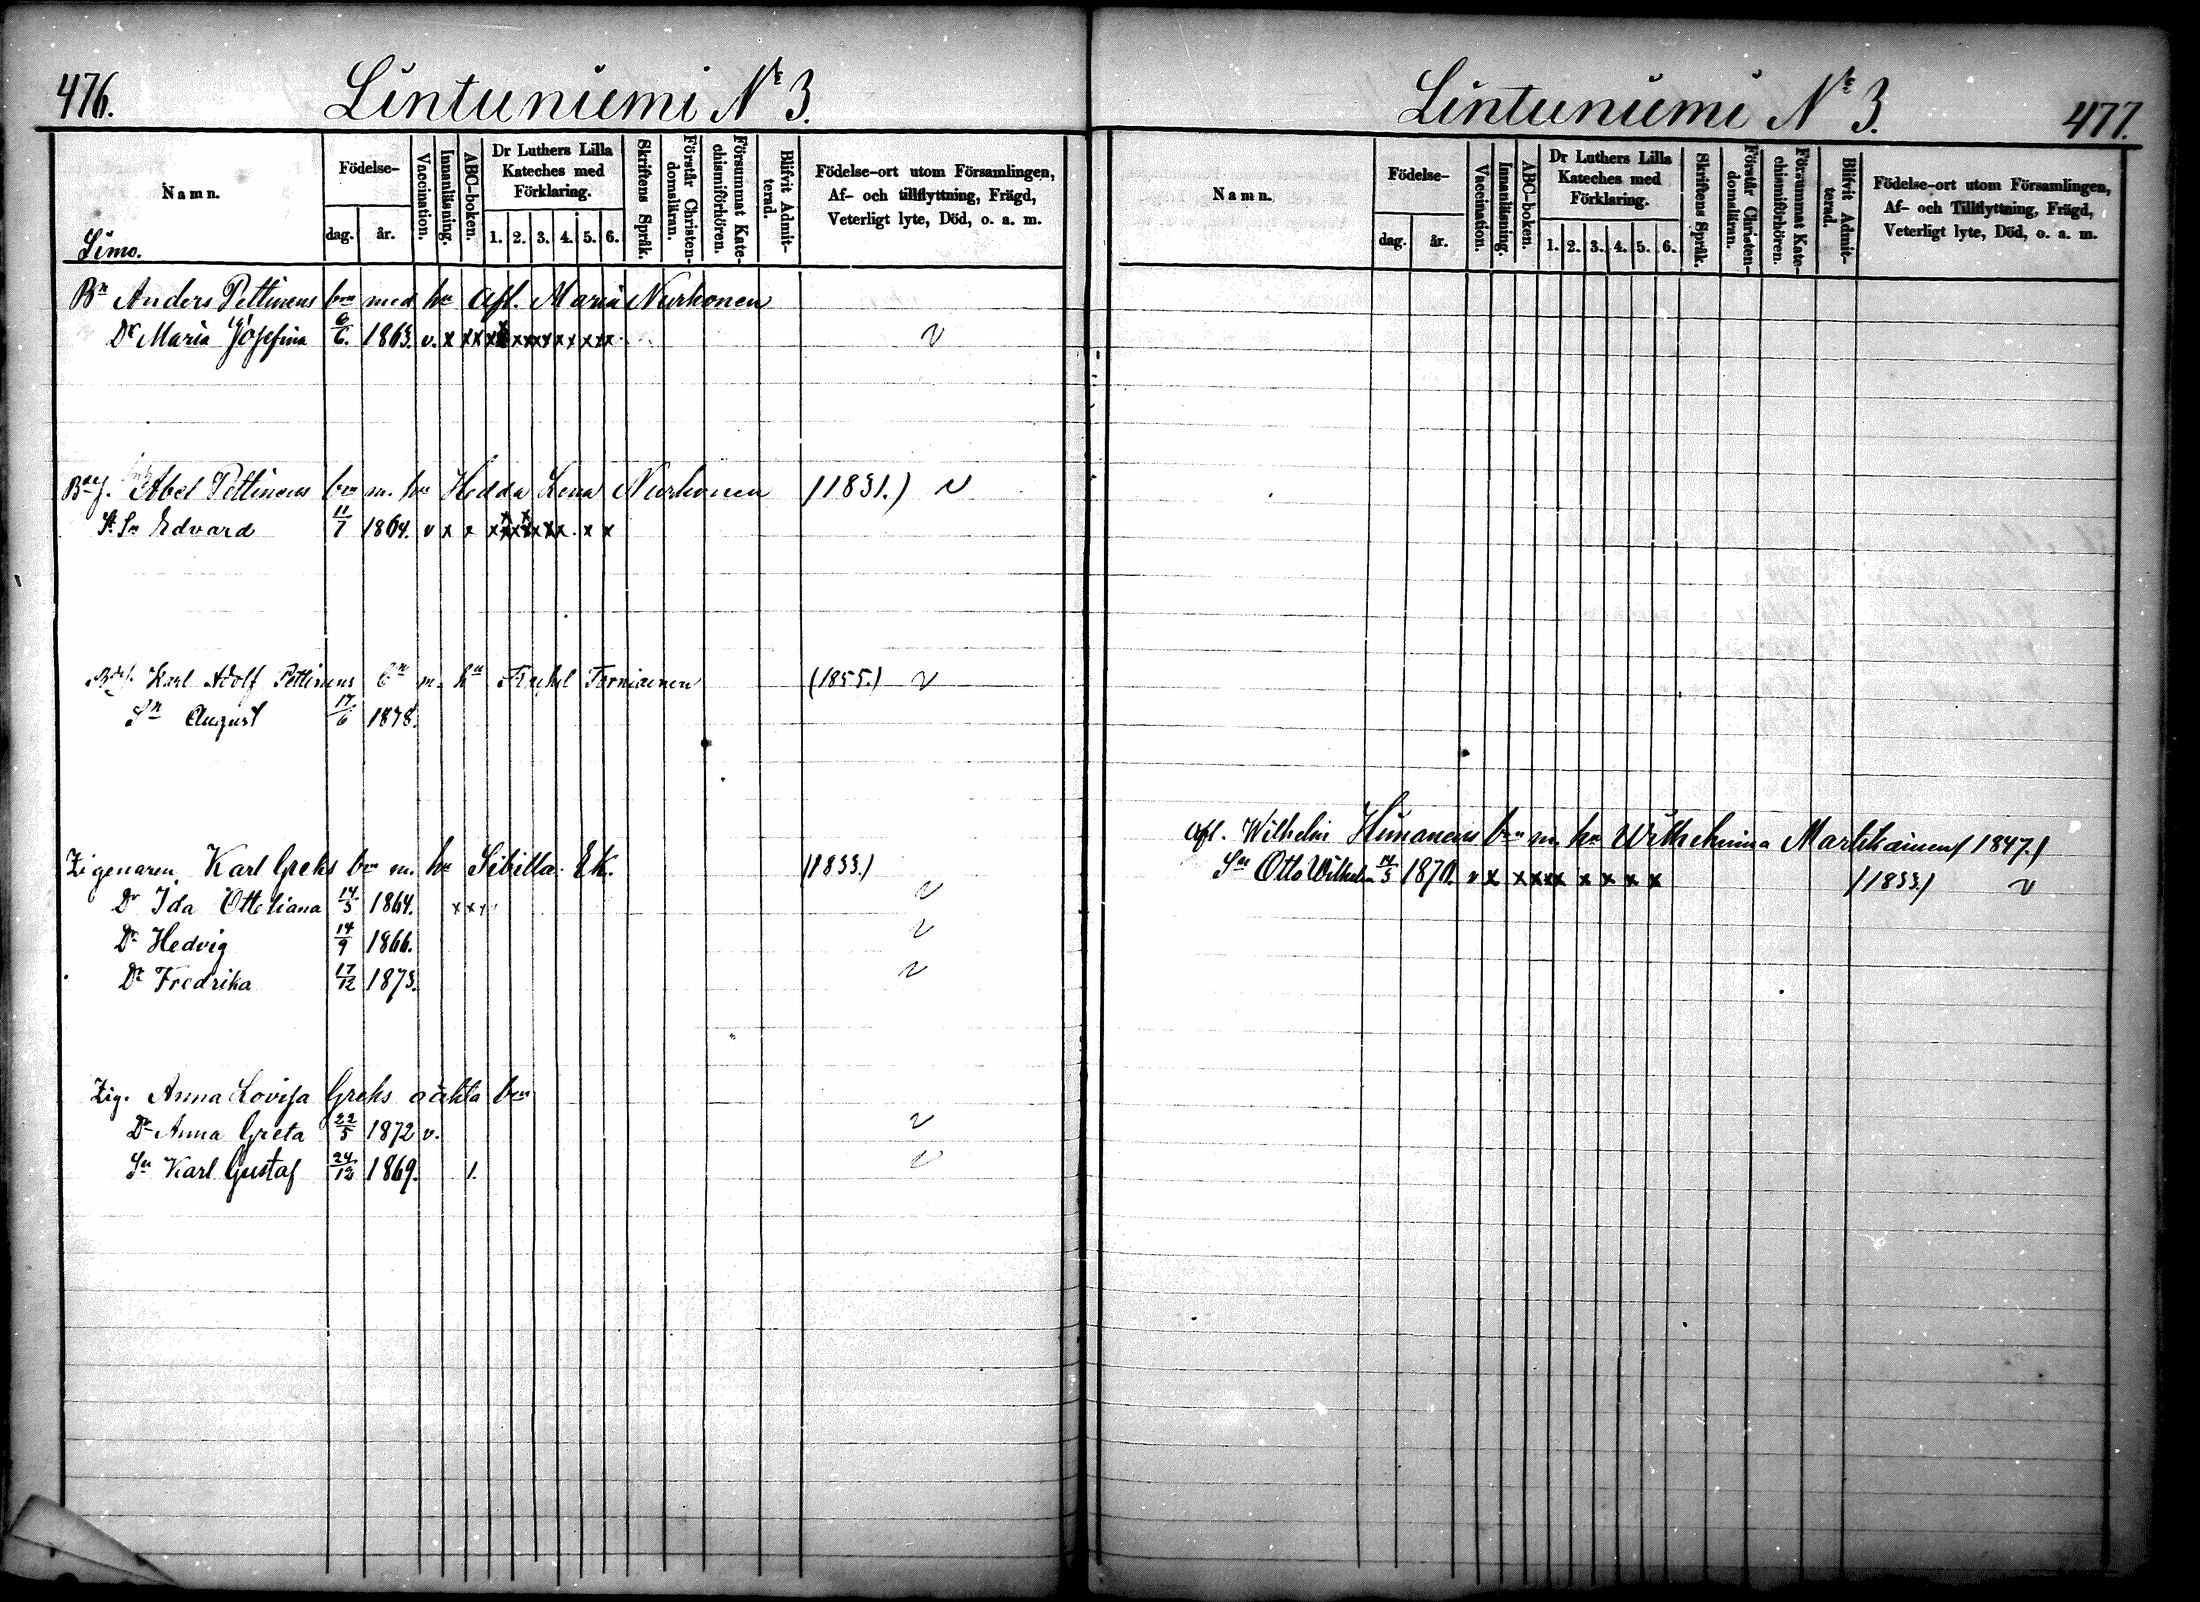 476.
Lintuniemi Nr 3.
Namn.
Födelse-
dag.
år.
Vaccination.
Innanläsning.
ABC-boken.
Dr Luthers Lilla
Kateches med
Förklaring.
1. 2. 3. 4. 5. 6.
Skriftens Språk.
Förstår Christen-
domsläran.
Försummat Kate-
chismiförhören.
Blifvit Admit-
terad.
Födelse-ort utom Församlingen,
Af- och tillflyttning, Frägd,
Veterligt lyte, Död, o. a. m.
Simo.
Bn Anders Pettinens brn med hu Afl. Maria Nurhonen
Dr Maria Josefina 6/6. 1863. v. x x x x x x x x x x x v
Abel Pettinens brn m. hu Hedda Lena Nurhonen (1831.) v
Sn Edvard 11/7 1864. v x x x x x x x x x x
Karl Adolf Pettinens bn m. hu Torniainen (1855.) v
Sn August 17/6 1878.
Zigenaren Karl Greks brn m. hu Sibilla Ek. (1833.)
Dr Ida Ottoliana 14/3 1864. x x x v
Dr Hedvig 14/9 1866. v
Dr Fredrika 17/12 1873. v
Zig. Anna Lovisa Greks oäkta brn
Dr Anna Greta 22/5 1872 v. v
Sn Karl Gustaf 24/12 1869. 1. v
Lintuniemi Nr 3.
477.
Namn.
Födelse-
dag.
år.
Vaccination.
Innanläsning.
ABC-boken.
Dr Luthers Lilla
Kateches med
Förklaring.
1. 2. 3. 4. 5. 6.
Skriftens Språk.
Förstår Christen-
domsläran.
Försummat Kate-
chismiförhören.
Blifvit Admit-
terad.
Födelse-ort utom Församlingen,
Af- och Tillflyttning, Frägd,
Veterligt lyte, Död, o. a. m.
Afl. Wilhelm Himanens brn m. hu Wilhelmina Markkainen (1847.)
Sn Otto Wilhelm 14/3 1870. v x x x x x x x x x (1833.) v